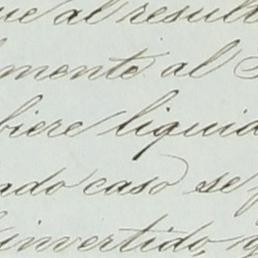 ue al result
lmente al S
biere liquid
ado caso se f
invertido, q